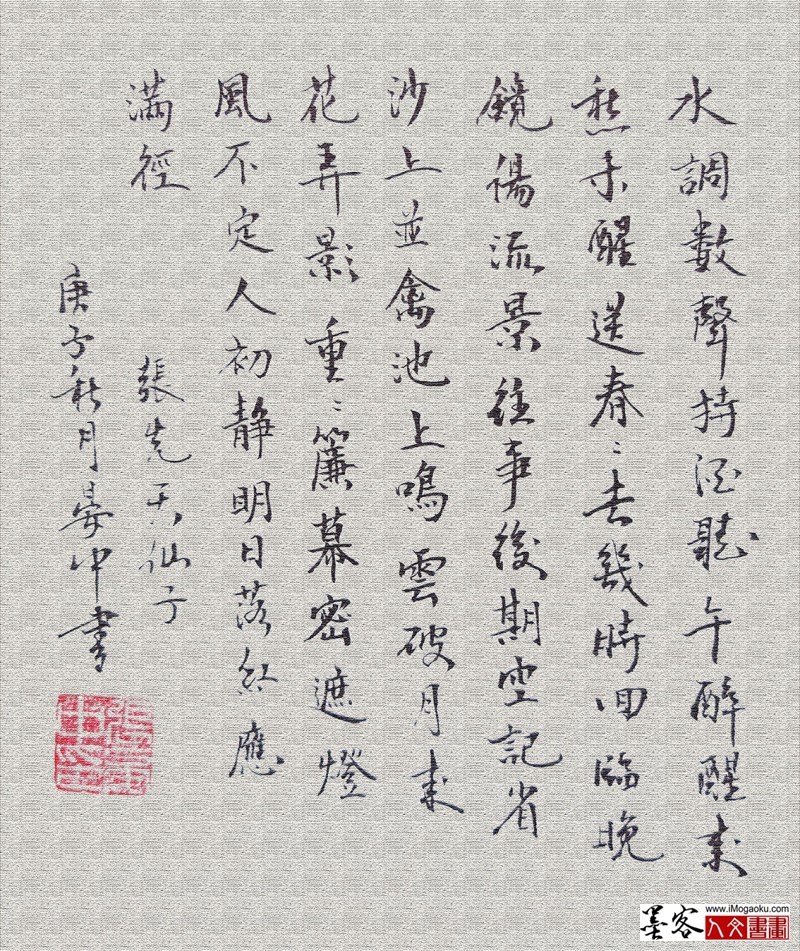 水調數聲持酒聽午醉醒來
愁未醒送春〻去幾時回臨晚
鏡傷流景往事後期空記省
沙上並禽池上鳴雲破月來
花弄影重〻簾幕密遮燈
風不定人初靜明日落紅應
滿徑
張先天仙子
庚子秋月晏中書
www.iMogaoku.com
墨客人文書畫